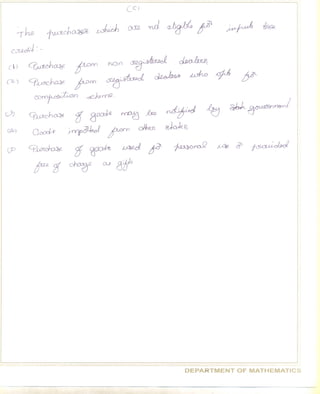 (c)
The purchases which are not eligible for input tax
credit :-
(1) Purchase from non registered dealer.
(2) Purchase from registered dealer who opts for
composition scheme
(3) Purchase of goods may be notified by state government
(4) Goods imported from other states
(5) Purchase of goods used for personal use or provided
free of charge as gift
DEPARTMENT OF MATHEMATICS